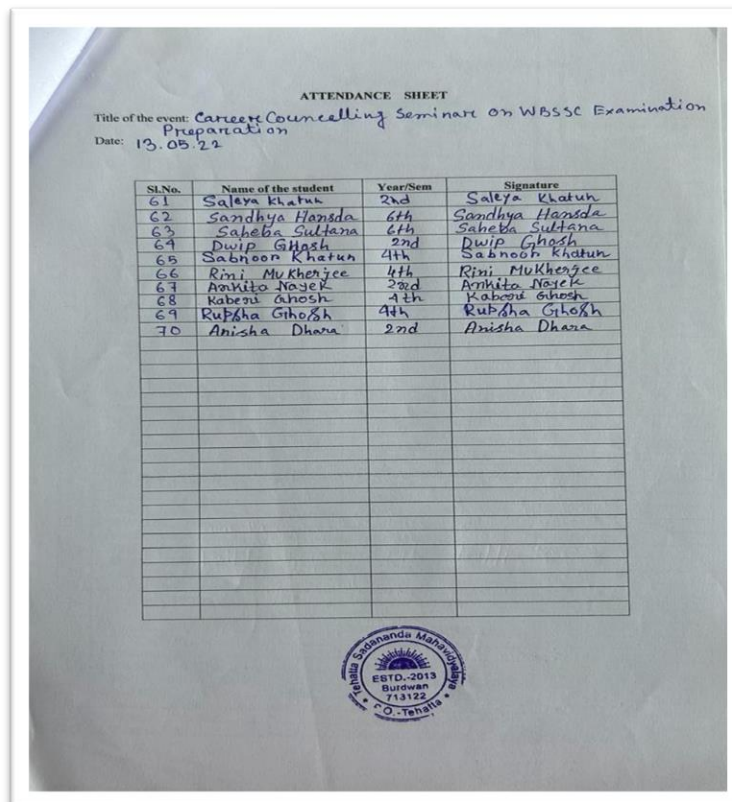 ATTENDANCE SHEET
Title of the event: Career Councelling Seminar on WBSSC Examination
Preparation
Date: 13.05.22
Sl.No. Name of the student Year/Sem Signature
61 Saleya Khatun 2nd Saleya Khatun
62 Sandhya Hansda 6th Sandhya Hansda
63 Saheba Sultana 6th Saheba Sultana
64 Dwip Ghosh 2nd Dwip Ghosh
65 Sabnoor Khatun 4th Sabnoor Khatun
66 Rini Mukherjee 4th Rini Mukherjee
67 Ankita Nayek 2nd Ankita Nayek
68 Kaberi Ghosh 4th Kaberi Ghosh
69 Rupsha Ghosh 4th Rupsha Ghosh
70 Anisha Dhara 2nd Anisha Dhara
Tehatta Sadananda Mahavidyalaya
ESTD.-2013
Burdwan
713122
P.O.-Tehatta